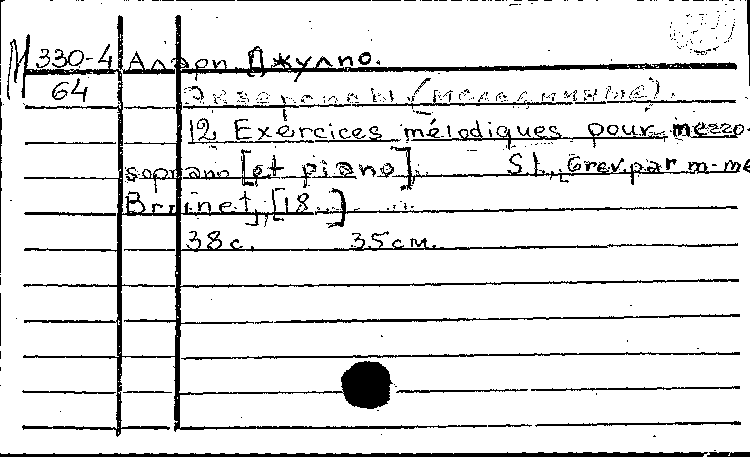 М 330-4 Алари Джулио.
64 Экзерсисы (мелодичные).
12 Exercices mélodiques pour mezzo-
soprano [et piano]. S.l., Grev. par m-me
Brrinet, [18...]
38 с. 35 см.